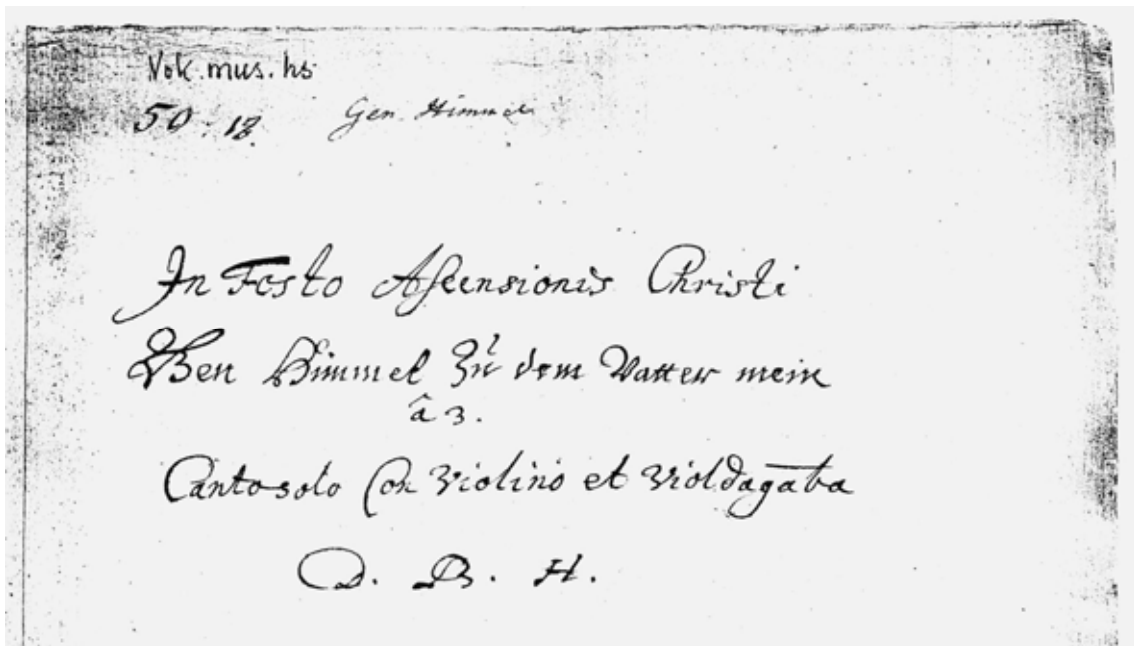 Vok. mus. hs.
50 : 18. Gen Himmel
In Festo Ascensionis Christi
Gen Himmel Zů dem Vatter mein
â 3.
Canto solo Con Violino et Violdagāba
D. B. H.